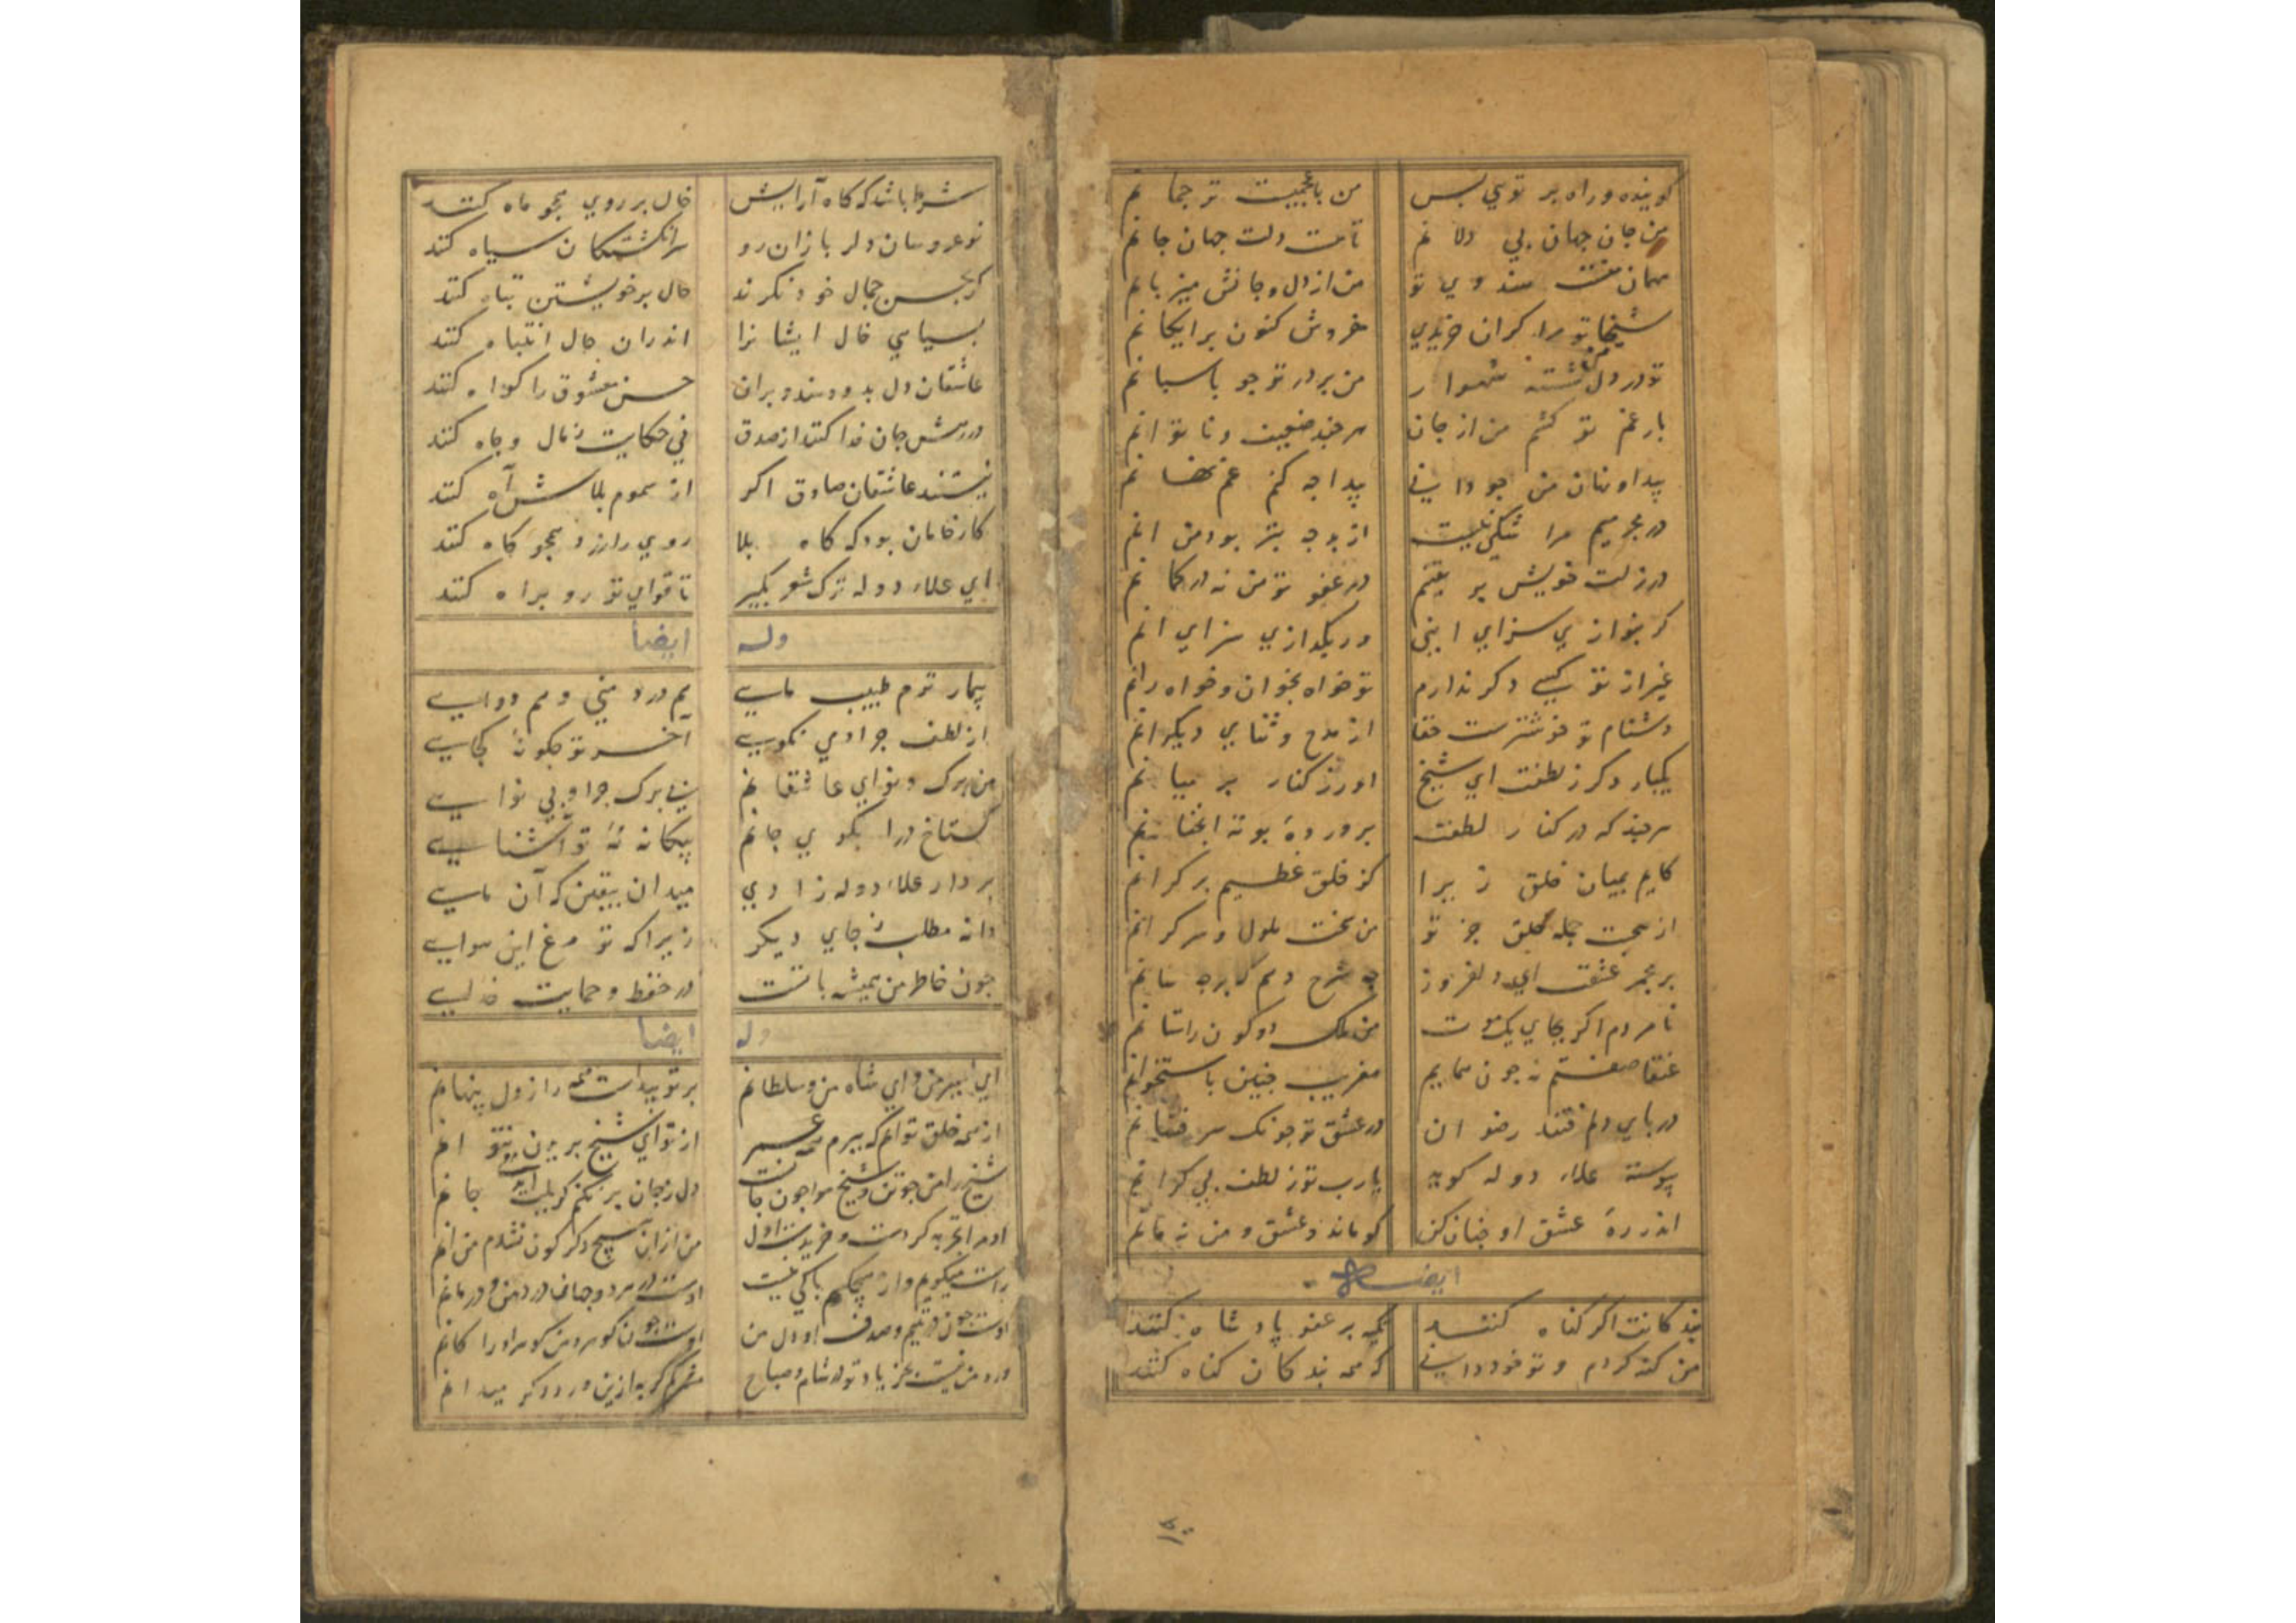 گوینده و راه بر تویی بس من با عجبیت ترجمانم
من جان جهان بی دلانم تا مت دلت جهان جانم
مهمان هندوی تو من از دل و جانش میزبانم
شیخا تو مرا کران خریدی مفروش کنون برایکانم
تو در دل نشسته شهوار من بر در تو جو پاسبانم
بار غم تو کشم من از جان هرچند ضعیف و ناتوانم
پیدا و نهان من جو دانی پیدا جه کنم غم نهانم
در مجرمیم مرا شکی نیست از هرجه بتر بود من انم
در زلت خویش بر یقینم در عفو تو من نه در کمانم
کر بنوازی سزای اینی ور بکدازی سزای انم
غیر از تو کسی دکر ندارم تو خواه بخوان و خواه رانم
دشنام تو خوشترست حقا از مدح و ثنای دیکرانم
یکبار دکر ز لطفت ای شیخ اور ز کنار بر میانم
هرچند که در کنار لطفت پرورده بوته امتحانم
کایم بمیان خلق زیرا کز خلق عظیم بر کرانم
از صحبت جمله خلق جز تو من سخت ملول و سرکرانم
بر مجمر عشقت ای دلفروز جه شرح دهم که بر جه سانم
نامردم اکر بجای یک موت من ملک دو کون را ستانم
عنقا صفتم نه جون همایم مفریب جنین باستخوانم
در پای دلم فتند رضوان در عشق تو جونک سر فشانم
پیوسته علاء دوله کوید یارب تو ز لطف بی کرانم
اندر ره عشق او جنان کن کو ماند و عشق و من نه مانم
ایضا
بندکانت اکر کناه کنند تکیه بر عفو پادشاه کنند
من کنه کردم و تو خود دانی که همه بندکان کناه کنند
شرط باشد که کاه آرایش خال بر روی همجو ماه کنند
نو عروسان دلربا زان رو سر انکشتکان سیاه کنند
کر بحسن جمال خود نکرند حال بر خویشتن تباه کنند
بسیاهی خال ایشانرا اندران حال انتباه کنند
عاشقان دل بدو دهند و بران حسن معشوق را کواه کنند
در رهش جان فدا کنند از صدق نی حکایت ز مال و جاه کنند
نیستند عاشقان صادق اکر از سموم بلاش آه کنند
کار خامان بود که کاه بلا روی را زرد همجو کاه کنند
ای علاء دوله ترک شعر بکیر تا قوای تو رو براه کنند
وله ایضا
بیمار توم طبیب مایی هم درد منی و هم دوایی
از لطف جرا دمی نکویی آخر تو جکونه کجایی
من برک و نوای عاشقانم بی برک جرا و بی نوایی
کستاخ درا بکوی جانم بیکانه نه تو آشنایی
بردار علاء دوله زادی میدان بیقین که آن مایی
دانه مطلب ز جای دیکر زیراکه تو مرغ این هوایی
جون خاطر من همیشه باتست در حفظ و حمایت خدایی
وله ایضا
ای امیر من و ای شاه من و سلطانم بر تو پیداست همه راز دل پنهانم
از همه خلق توانم که ببرم همه عمر از تو ای شیخ بریدن نتوانم
شیخ را من جو تن و شیخ مرا جون جانست دل ز جان بر نکنم کر بلب آید جانم
او مرا تجربه کردست و خریدست اول من از ان هیچ دکرکون نشدم من انم
راست میکویم و از هیچکسم باکی نیست اوست در هر دو جهان درد من و درمانم
اوست جون در یتیم و صدف او دل من اوست جون کوهر و من کوهر او را کانم
ورد من نیست بجز یاد تو در شام و صباح کر به ازین ورد دکر میدانم